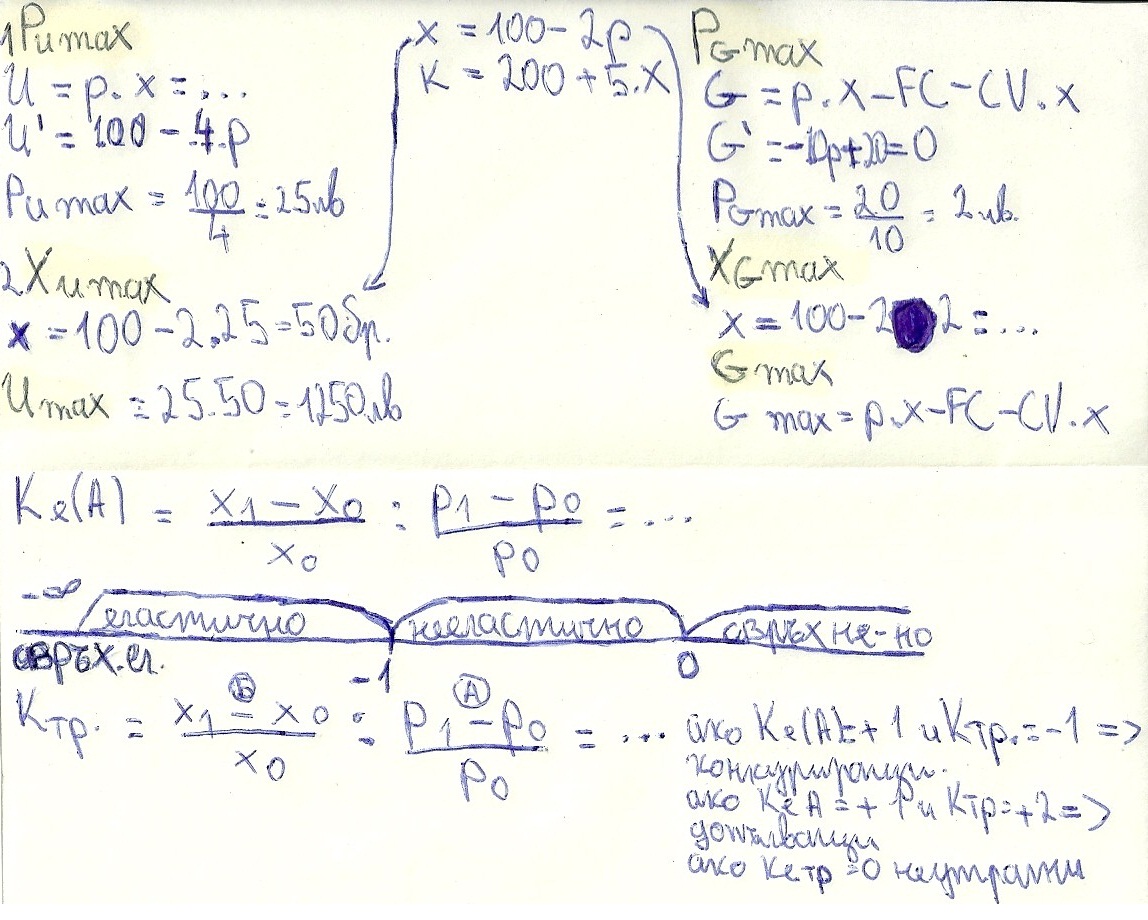 1 Pu max
U = p. x = ...
U' = 100 - 4.p
Pu max = 100/4 = 25лв
2 Xu max
x = 100 - 2.25 = 50бр.
Umax = 25.50 = 1250лв
x = 100 - 2p
K = 200 + 5.x
PG max
G = p.x - FC - CV.x
G' = -10p + 20 = 0
PG max = 20/10 = 2лв.
XG max
x = 100 - 2 2 = ...
G max
G max = p.x - FC - CV.x
Ke(A) = x1 - x0 / x0 : p1 - p0 / p0 = ...
-∞ еластично нееластично свръх не-но
свръх.ел. -1 0
Kтр. = x1 - x0 / x0 (Б) : P1 - P0 / P0 (A) = ...
ако Ke(A)=+1 и Kтр.=-1 =>
конкуриращи.
ако KeA=+1 и Kтр=+2 =>
допълващи
ако Kетр=0 неутрални